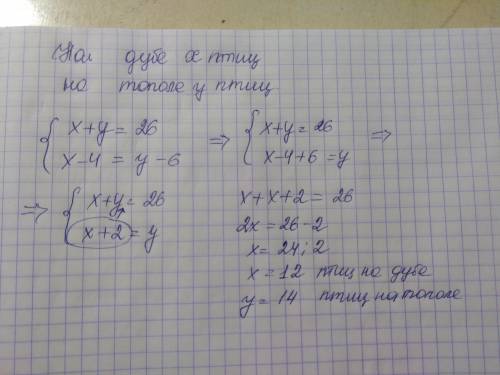 На дубе x птиц
на тополе y птиц
{ x+y = 26
x-4 = y-6 ⇒ { x+y = 26
x-4+6 = y ⇒
⇒ { x+y = 26
x+2 = y
x+x+2 = 26
2x = 26-2
x = 24:2
x = 12 птиц на дубе
y = 14 птиц на тополе